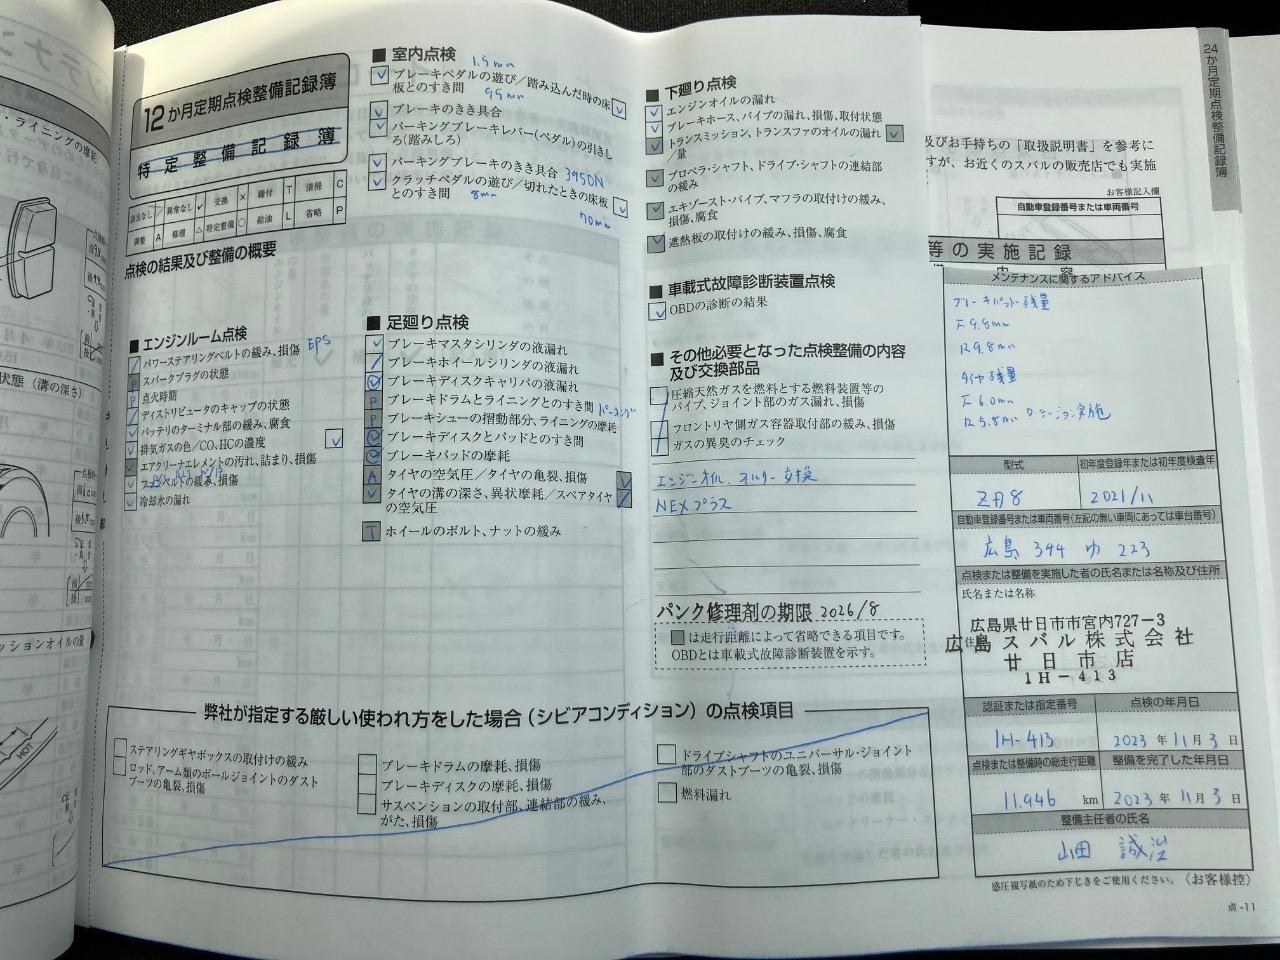 ・ライニングの摩耗
状態(溝の深さ)
ッションオイルの量
HOT
12か月定期点検整備記録簿
特定整備記録簿
異常なし ✓ 交換 × 締付 T 清掃 C
調整 A 修理 △ 特定整備 ○ 給油 L 省略 P
点検の結果及び整備の概要
■ エンジンルーム点検
パワーステアリングベルトの緩み、損傷 EPS
スパークプラグの状態
点火時期
ディストリビュータのキャップの状態
バッテリのターミナル部の緩み、腐食
排気ガスの色/CO、HCの濃度
エアクリーナエレメントの汚れ、詰まり、損傷
ベルトの緩み、損傷
冷却水の漏れ
■ 室内点検
1.5mm
ブレーキペダルの遊び/踏み込んだ時の床
板とのすき間 95mm
ブレーキのきき具合
パーキングブレーキレバー(ペダル)の引きし
ろ(踏みしろ)
パーキングブレーキのきき具合 3950N
クラッチペダルの遊び/切れたときの床板
とのすき間 8mm
70mm
■ 足廻り点検
ブレーキマスタシリンダの液漏れ
ブレーキホイールシリンダの液漏れ
ブレーキディスクキャリパの液漏れ
ブレーキドラムとライニングとのすき間 パーキング
ブレーキシューの摺動部分、ライニングの摩耗
ブレーキディスクとパッドとのすき間
ブレーキパッドの摩耗
タイヤの空気圧/タイヤの亀裂、損傷
タイヤの溝の深さ、異状摩耗/スペアタイヤ
の空気圧
ホイールのボルト、ナットの緩み
■ 下廻り点検
エンジンオイルの漏れ
ブレーキホース、パイプの漏れ、損傷、取付状態
トランスミッション、トランスファのオイルの漏れ
/量
プロペラ・シャフト、ドライブ・シャフトの連結部
の緩み
エキゾースト・パイプ、マフラの取付けの緩み、
損傷、腐食
遮熱板の取付けの緩み、損傷、腐食
■ 車載式故障診断装置点検
OBDの診断の結果
■ その他必要となった点検整備の内容
及び交換部品
圧縮天然ガスを燃料とする燃料装置等の
パイプ、ジョイント部のガス漏れ、損傷
フロントリヤ側ガス容器取付部の緩み、損傷
ガスの異臭のチェック
エンジンオイル、オイルフィルター交換
NEXプラス
パンク修理剤の期限 2026/8
は走行距離によって省略できる項目です。
OBDとは車載式故障診断装置を示す。
弊社が指定する厳しい使われ方をした場合(シビアコンディション)の点検項目
ステアリングギヤボックスの取付けの緩み
ロッド、アーム類のボールジョイントのダスト
ブーツの亀裂、損傷
ブレーキドラムの摩耗、損傷
ブレーキディスクの摩耗、損傷
サスペンションの取付部、連結部の緩み、
がた、損傷
ドライブシャフトのユニバーサル・ジョイント
部のダストブーツの亀裂、損傷
燃料漏れ
24か月定期点検整備記録簿
及びお手持ちの「取扱説明書」を参考に
すが、お近くのスバルの販売店でも実施
お客様記入欄
自動車登録番号または車両番号
等の実施記録
内 容
メンテナンスに関するアドバイス
ブレーキパット残量
F 9.8mm
R 9.8mm
タイヤ残量
F 6.0mm
R 5.8mm ローテーション実施
型式
初年度登録年または初年度検査年
ZD8
2021/11
自動車登録番号または車両番号(左記の無い車両にあっては車台番号)
広島 344 ゆ 223
点検または整備を実施した者の氏名または名称及び住所
氏名または名称
広島県廿日市市宮内727-3
広島スバル株式会社
廿日市店
1H-413
認証または指定番号
点検の年月日
1H-413
2023年11月3日
点検または整備時の総走行距離
整備を完了した年月日
11,946 km
2023年11月3日
整備主任者の氏名
山田 誠治
感圧複写紙のため下じきをご使用ください。〈お客様控〉
点-11